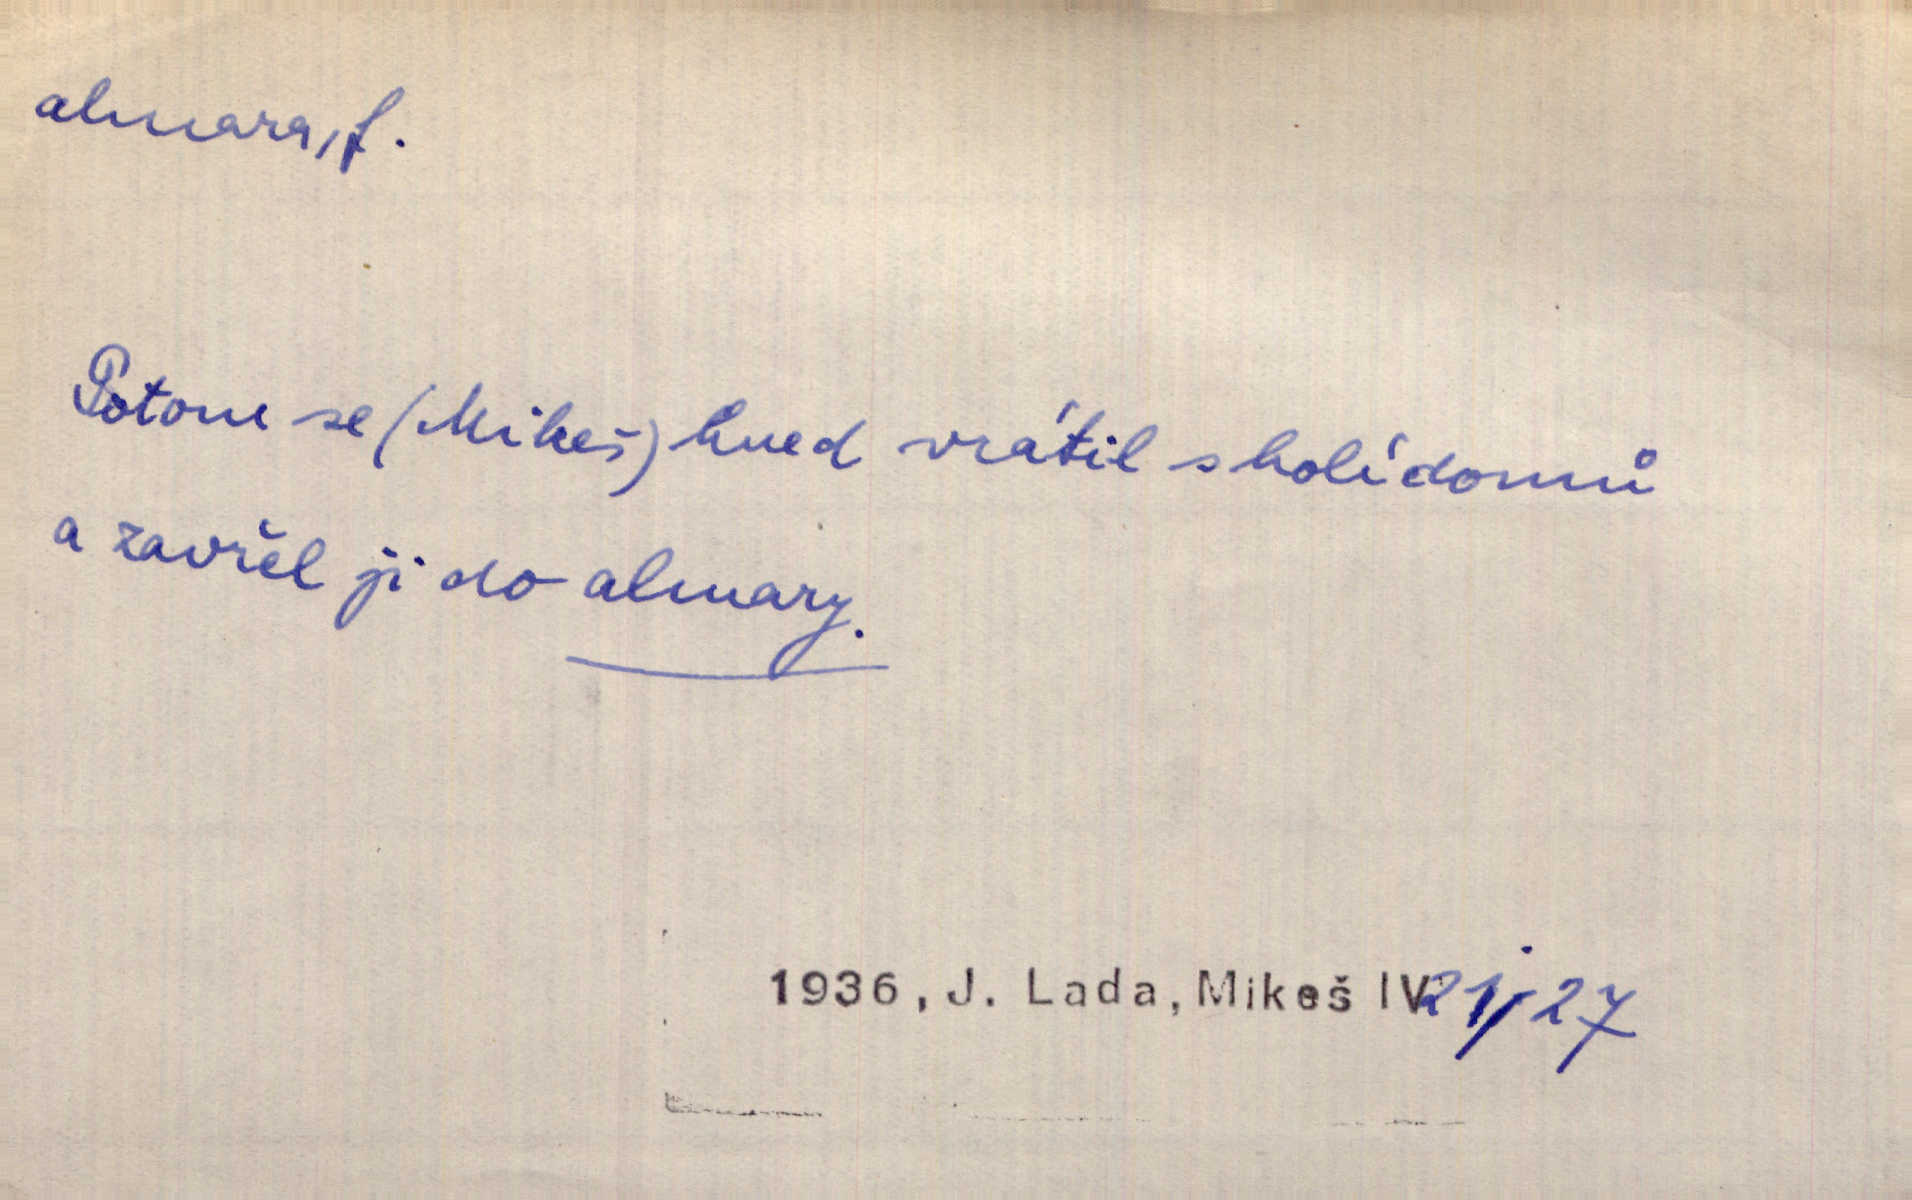 almara, f.
Potom se (Mikeš) hned vrátil s holí domů
a zavřel ji do almary.
1936, J. Lada, Mikeš IV 21, 27